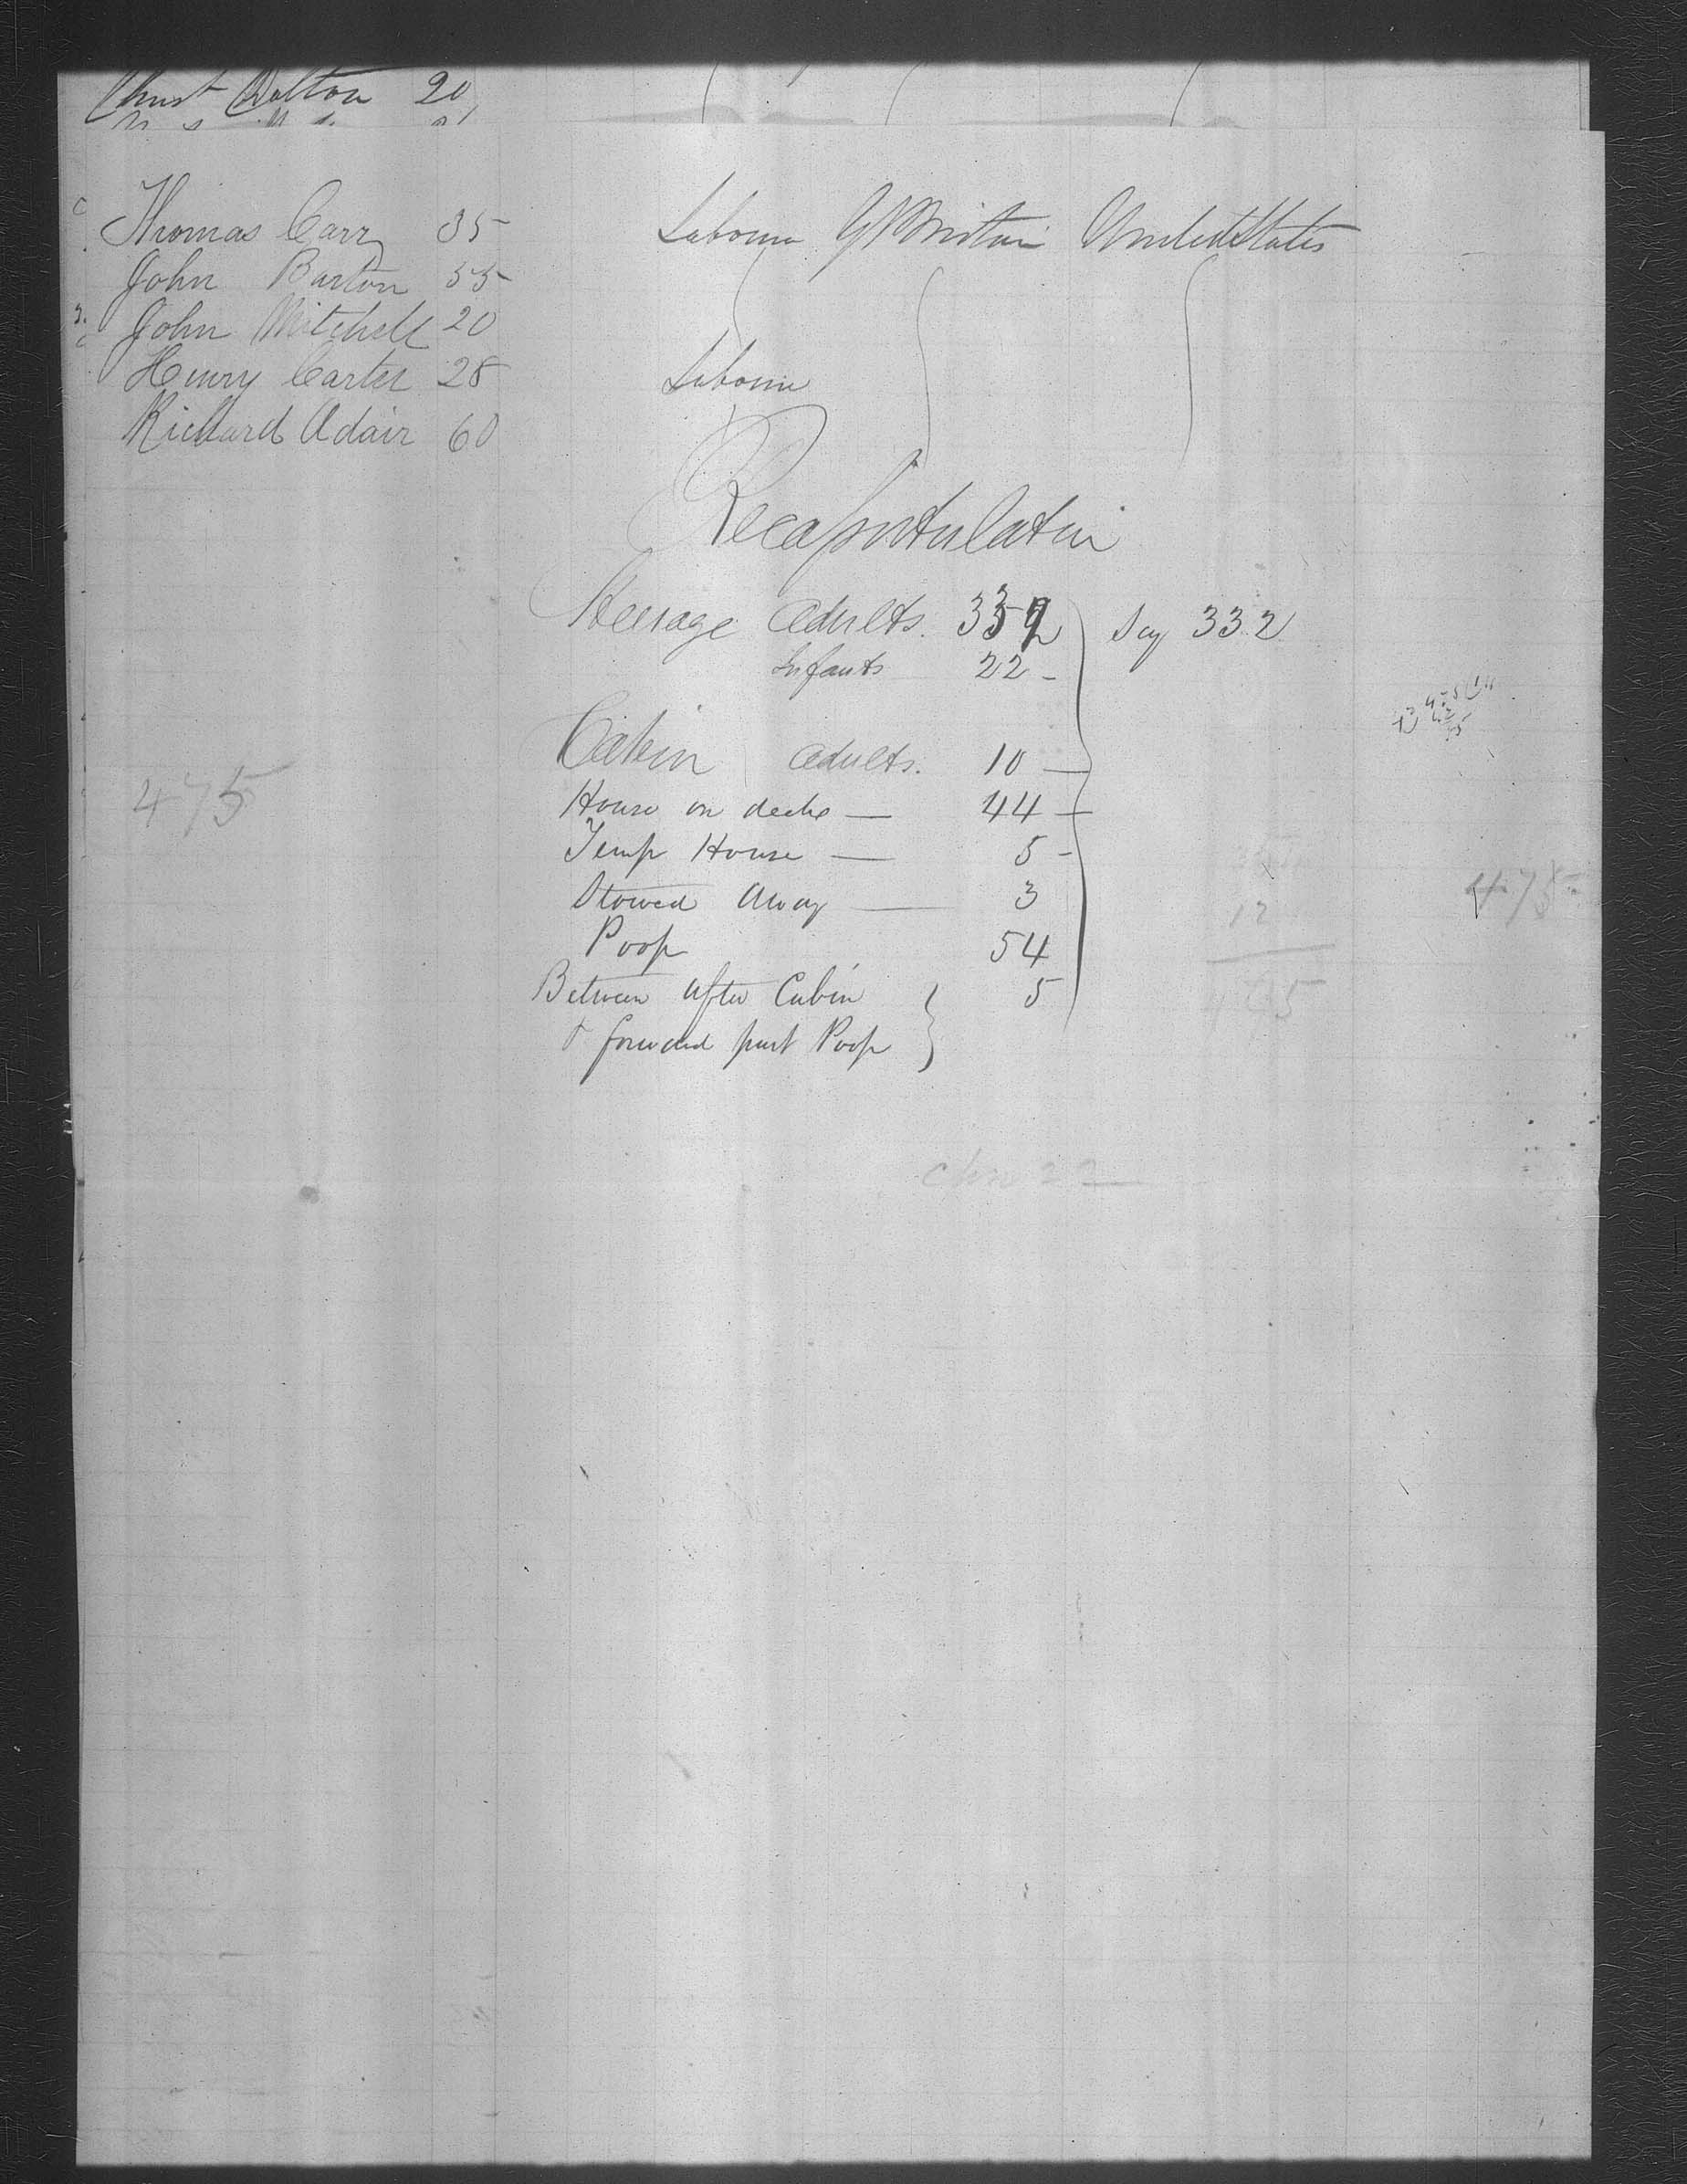 Christ Dalton 20
Thomas Carr 35 Laborer Gt Britain United States
John Barton 35
John Mitchell 20
Henry Carter 28 Laborer
Richard Adair 60
Recapitulation
Steerage Adults. 332 Say 332
Infants 22
Cabin Adults. 10
House on decks 44
475
Temp House 5
Stowed Away 3
475
12
Poop 54
Between after Cabin 5
475
& forward part Poop
chn 22